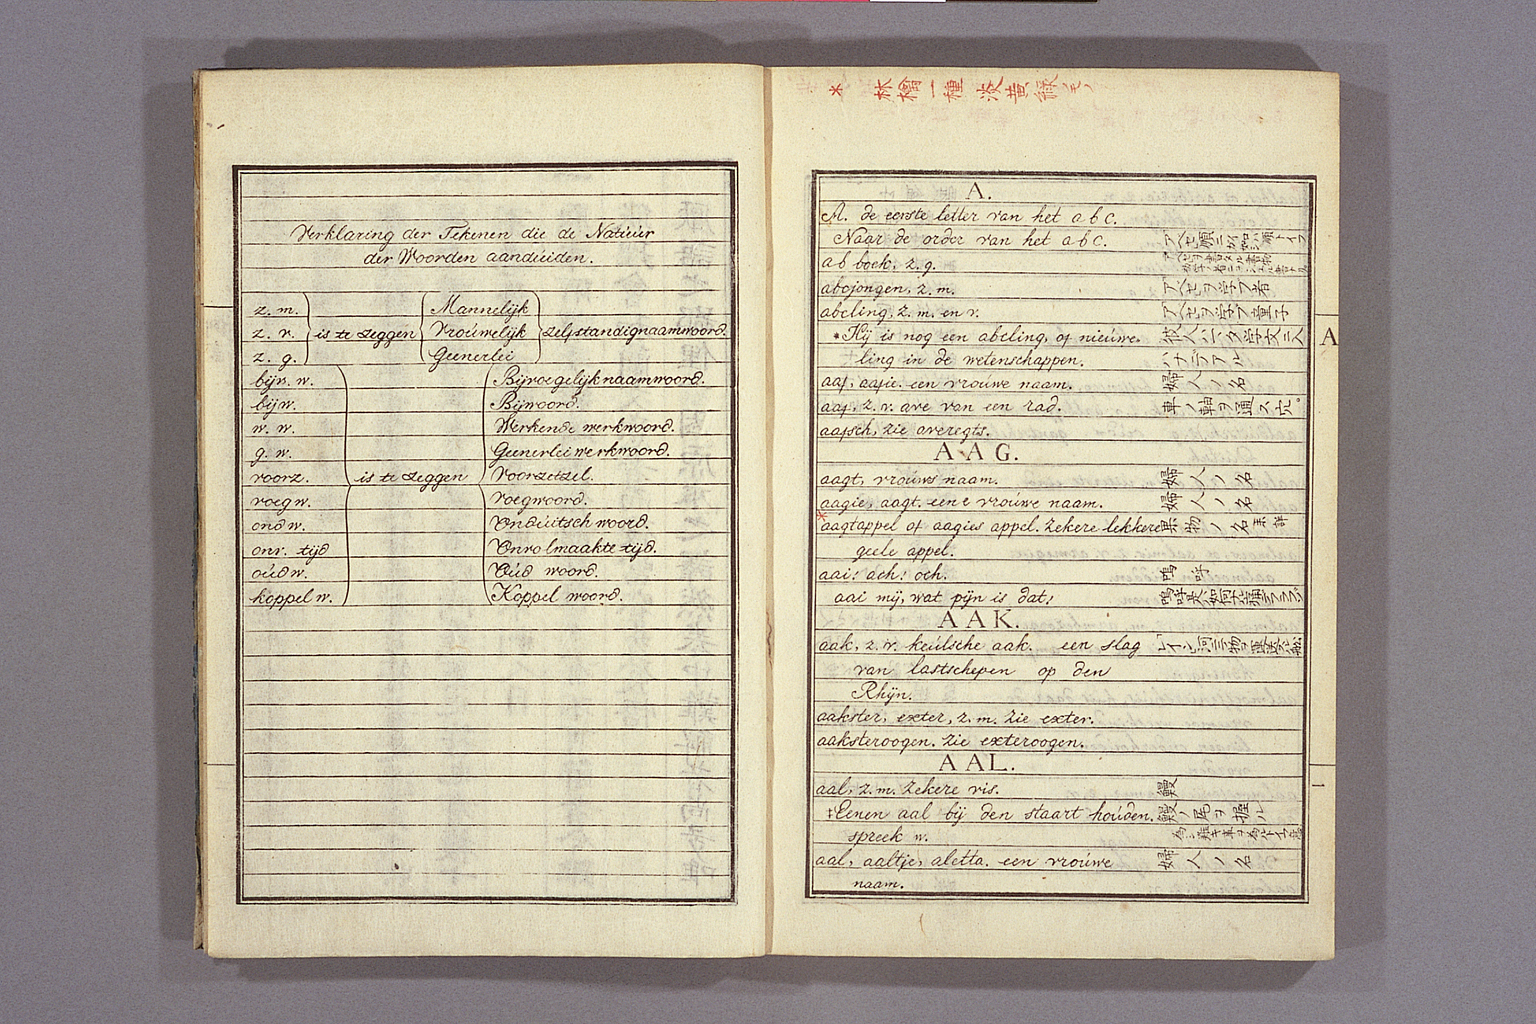 Verklaring der Tekenen die de Natuur
der Woorden aanduiden.
z. m. Mannelijk
z. v. is te zeggen Vrouwelijk zelfstandignaamwoord.
z. g. Geenerlei
bijv. w. Bijvoegelijknaamwoord.
bijw. Bijwoord.
w. w. Werkende werkwoord.
g. w. Geenerlei werkwoord.
voorz. is te zeggen Voorzetzel.
voegw. Voegwoord.
ondw. Onduitsch woord.
onv. tijd Onvolmaakte tijd.
oud w. Oud woord.
koppel w. Koppel woord.
* 林檎一種淡黄緑
A.
A. de eerste letter van het a b c.
Naar de order van het a b c.
ab boek, z. g.
abcjongen, z. m. アベセヲ学フ者
abeling, z. m. en v. アベセヲ学フ童子
*Hij is nog een abeling, of nieuwe-
ling in de wetenschappen.
aaf, aafie. een vrouwe naam. 婦人ノ名
aaf, z. v. ave van een rad. 車ノ軸ヲ通ス穴。
aafsch, zie averegts.
A A G.
aagt, vrouws naam. 婦人ノ名
aagie, aagt. eene vrouwe naam. 婦人ノ名
*aagtappel of aagies appel. zekere lekkere 果物ノ名 未詳
geele appel.
aai! ach! och. 嗚呼
aai mij, wat pijn is dat!
A A K.
aak, z. v. keulsche aak. een slag
van lastschepen op den
Rhijn.
aakster, exter, z. m. zie exter.
aaksteroogen. zie exteroogen.
A AL.
aal, z. m. zekere vis. 鰻
‡Eenen aal bij den staart houden. 鰻ノ尾ヲ握ル
spreek w.
aal, aaltje, aletta. een vrouwe 婦人ノ名
naam.
A
1